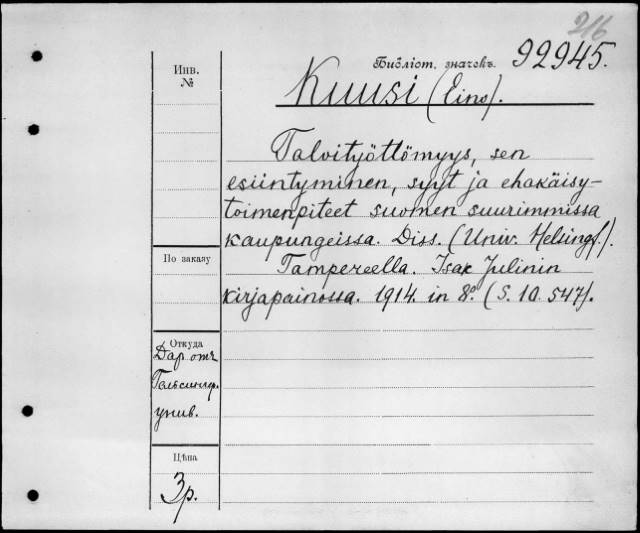 216
Библіот. значекъ. 92945.
Инв.
№
Kuusi (Eino).
Talvityöttömyys, sen
esiintyminen, syyt ja ehakäisy-
toimenpiteet suomen suurimmissa
kaupungeissa. Diss. (Univ. Helsingf.).
По заказу
Tampereella. Isac Julinin
kirjapainossa. 1914. in 8º. (S. 10. 547).
Откуда
Дар отъ
Гельсингф.
унив.
Цѣна
3 р.